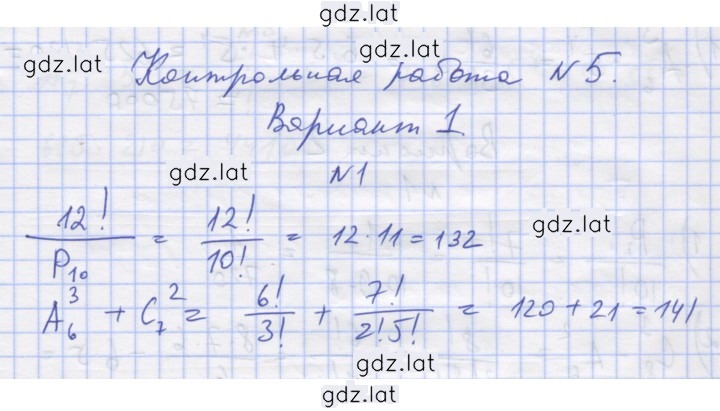 gdz.lat
gdz.lat
gdz.lat
Контрольная работа №5.
Вариант 1
gdz.lat
№1
12!/P₁₀ = 12!/10! = 12·11 = 132
gdz.lat
A₆³ + C₇² = 6!/3! + 7!/2!5! = 120 + 21 = 141
gdz.lat
gdz.lat